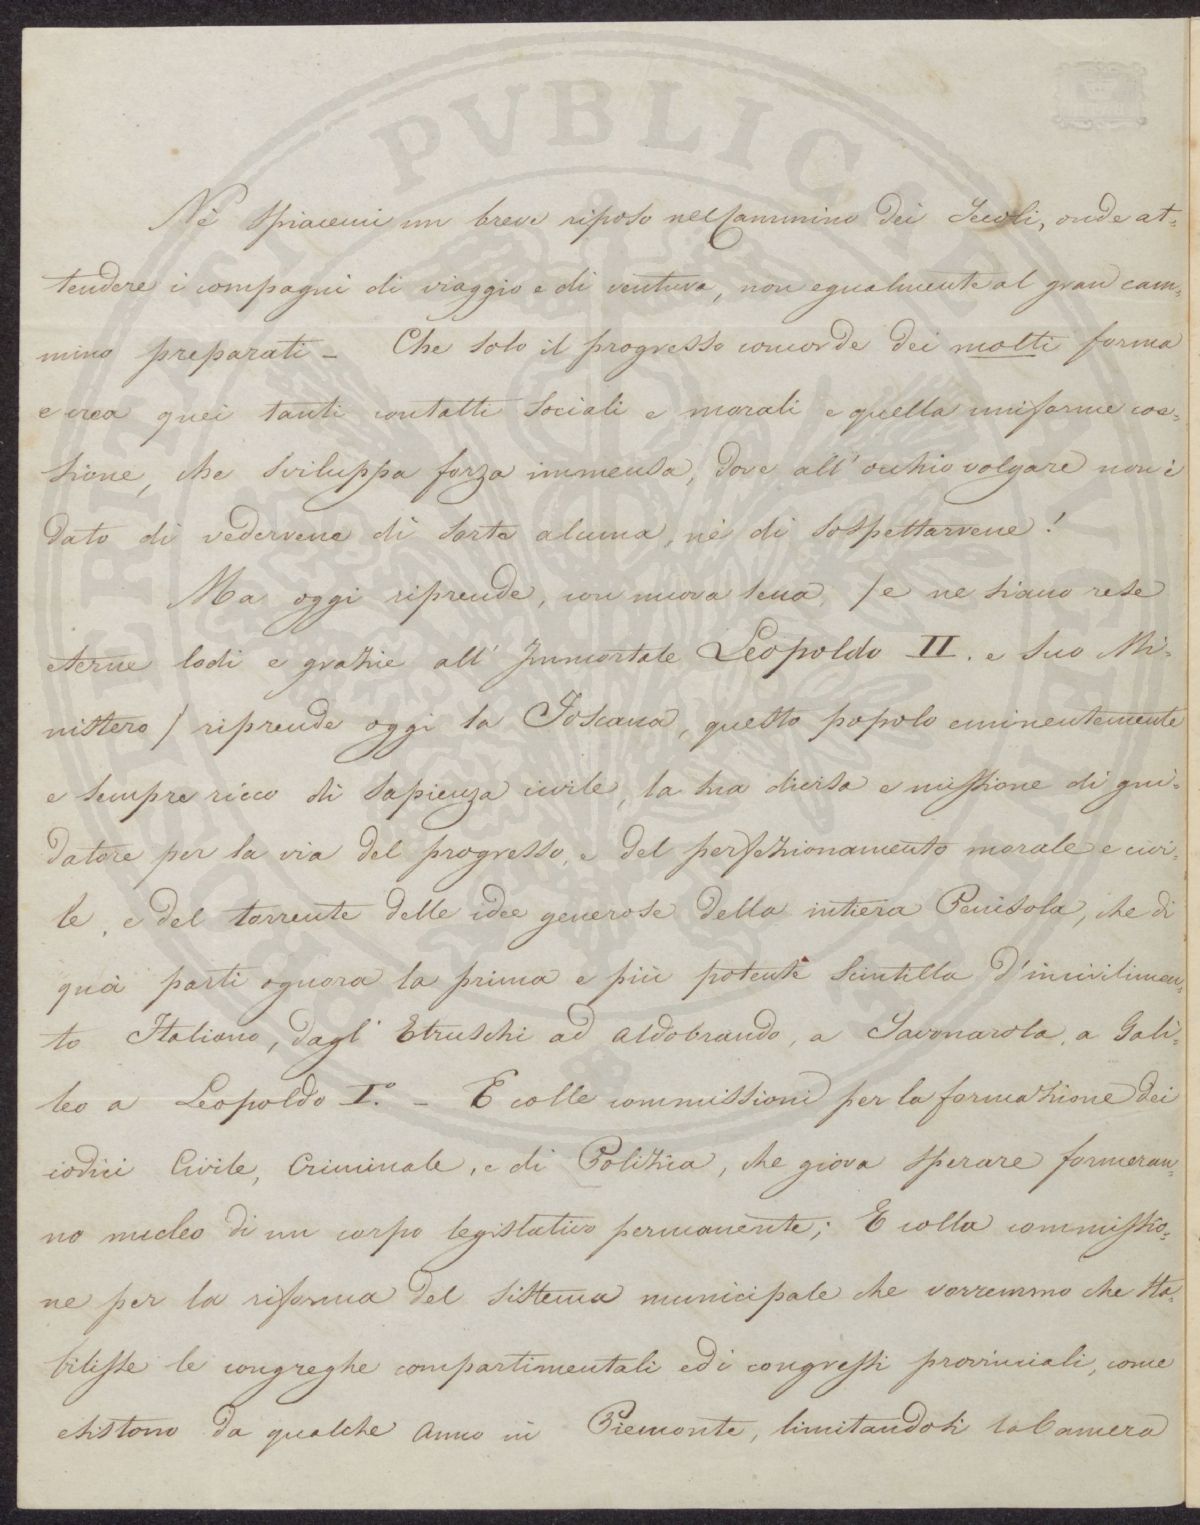 Nè spiacemi un breve riposo nel Cammino dei Secoli, onde at=
tendere i compagni di viaggio e di ventura, non egualmente al gran cam=
mino preparati – Che solo il progresso concorde dei molti forma
e crea quei tanti contatti sociali e morali e quella uniforme coe=
sione, che sviluppa forza immensa, dove all' occhio volgare non è
dato di vedervene di sorte alcuna, nè di sospettarvene!
Ma oggi riprende, con nuova lena, / e ne siano rese
eterne lodi e grazie all' Immortale Leopoldo II. e suo Mi=
nistero / riprende oggi la Toscana, questo popolo eminentemente
e sempre ricco di sapienza civile, la sua divisa e missione di gui=
datore per la via del progresso, e del perfezionamento morale e civi=
le, e del torrente delle idee generose della intiera Penisola, che di
quà partì ognora la prima e più potente scintilla d'incivilimen=
to Italiano, dagl' Etruschi ad Aldobrando, a Savonarola, a Gali=
leo a Leopoldo I.° – E colle commissioni per la formazione dei
codici Civile, Criminale, e di Polizia, che giova sperare formeran=
no nucleo di un corpo legislativo permanente; E colla commissio=
ne per la riforma del sistema municipale che vorremmo che sta=
bilisse le congreghe compartimentali ed i congressi provinciali, come
esistono da qualche anno in Piemonte, limitandosi la Camera
PVBLIC